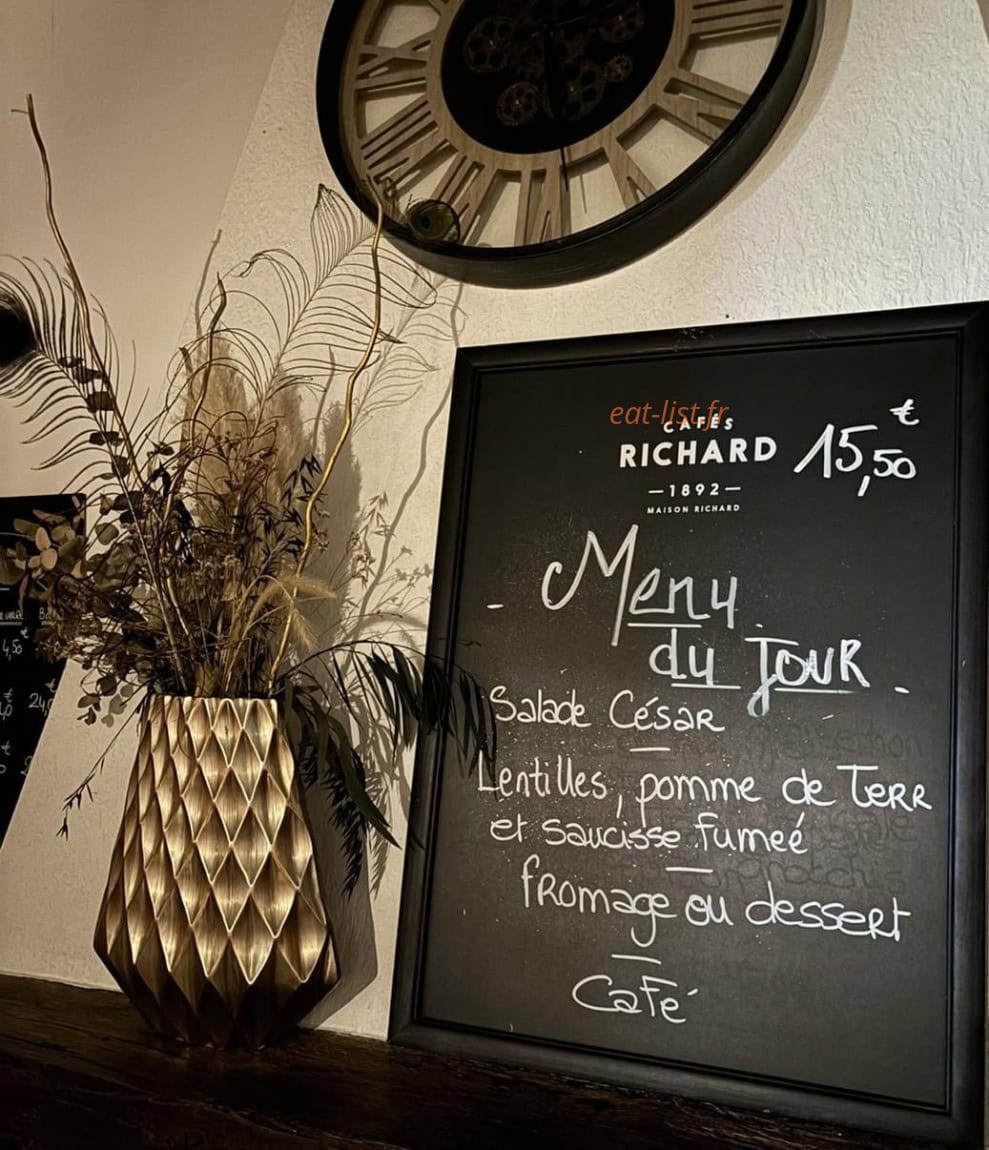 eat-list.fr
CAFÉS
RICHARD
—1892—
MAISON RICHARD
15,50 €
- Menu
du Jour -
Salade César
Lentilles, pomme de Terr
et saucisse fumeé
fromage ou dessert
Café
4,50 €